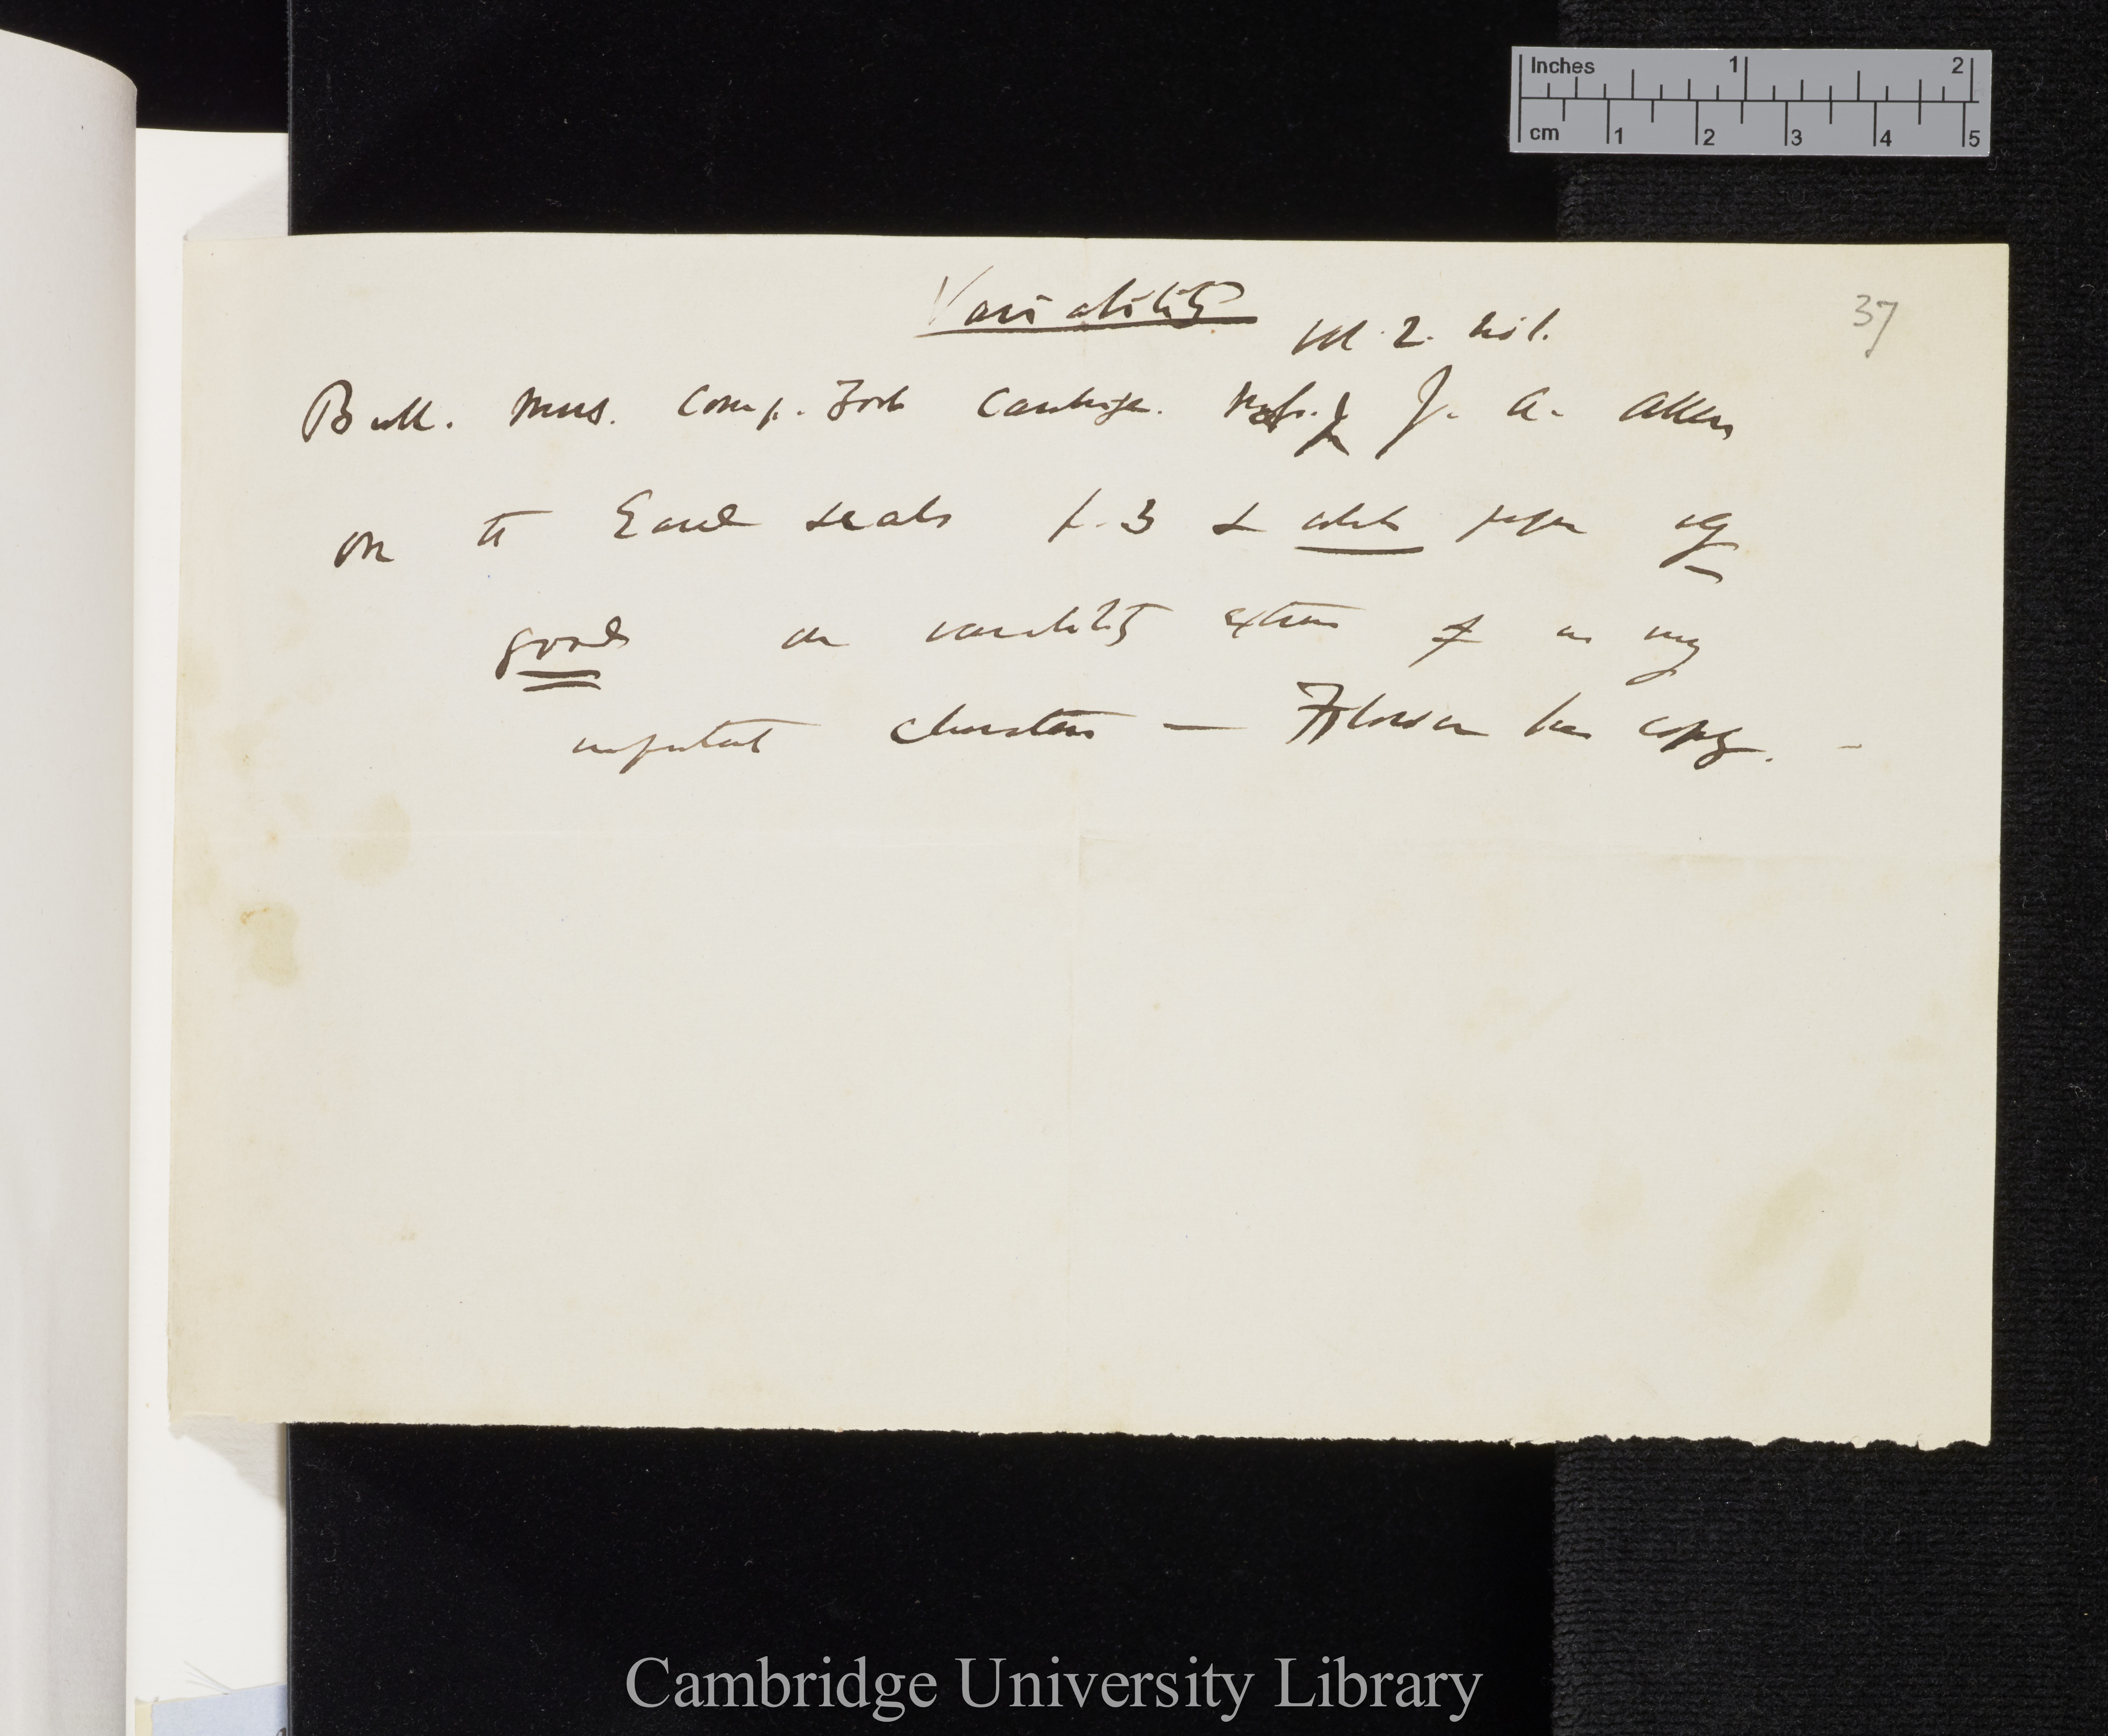 Inches 1 2
cm 1 2 3 4 5
37
Variability
Vol. 2. No 1.
Bull. Mus. Comp. Zool Cambridge. by J. A. Allen
on the Eared seals p. 3 & whole paper
good on variability extreme of in many
important characters — Flower has copy. –
Cambridge University Library